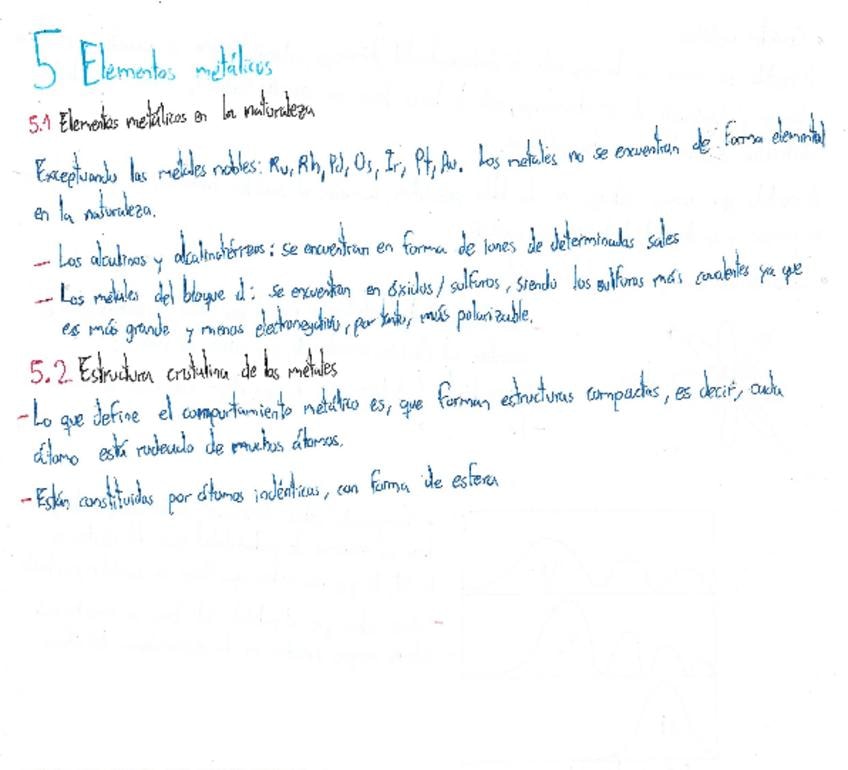 5 Elementos metálicos
5.1 Elementos metálicos en la naturaleza
Exceptuando los metales nobles: Ru, Rh, Pd, Os, Ir, Pt, Au. Los metales no se encuentran de forma elemental
en la naturaleza.
- Los alcalinos y alcalinotérreos: se encuentran en forma de iones de determinadas sales
- Los metales del bloque d: se encuentran en óxidos/sulfuros, siendo los sulfuros más covalentes ya que
es más grande y menos electronegativo, por tanto, más polarizable.
5.2 Estructura cristalina de los metales
- Lo que define el comportamiento metálico es, que forman estructuras compactas, es decir, cada
átomo está rodeado de muchos átomos.
- Están constituidas por átomos indénticas, con forma de esfera